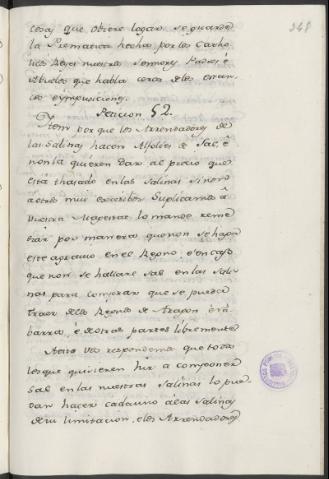 248
cosas que obiere logar se guarde
la Prematica hecha por los Catho
licos Reyes nuestros Sennores Padres é
Abuelos que habla cerca de los estan
cos é ymposiciones.
Peticion 52.
Item por que los Arrendadores de
las Salinas hacen Alfolies de Sal, é
non la quieren dar al precio que
está thasado en las Salinas sino à
otros mui excesibos Suplicamos à
Vuestra Magestat lo mande reme
diar por manera que non se haga
este agravio en el Reyno é en caso
que non se hallare Sal en las Sali
nas para comprar que se pueda
traer de los Reynos de Aragon é Na
barra, é de otras partes libremente
A esto vos respondemos que todos
los que quisieren hir a componer
Sal en las nuestras Salinas lo pue
dan hacer cada uno á las Salinas
de su limitacion, é los Arrendadores